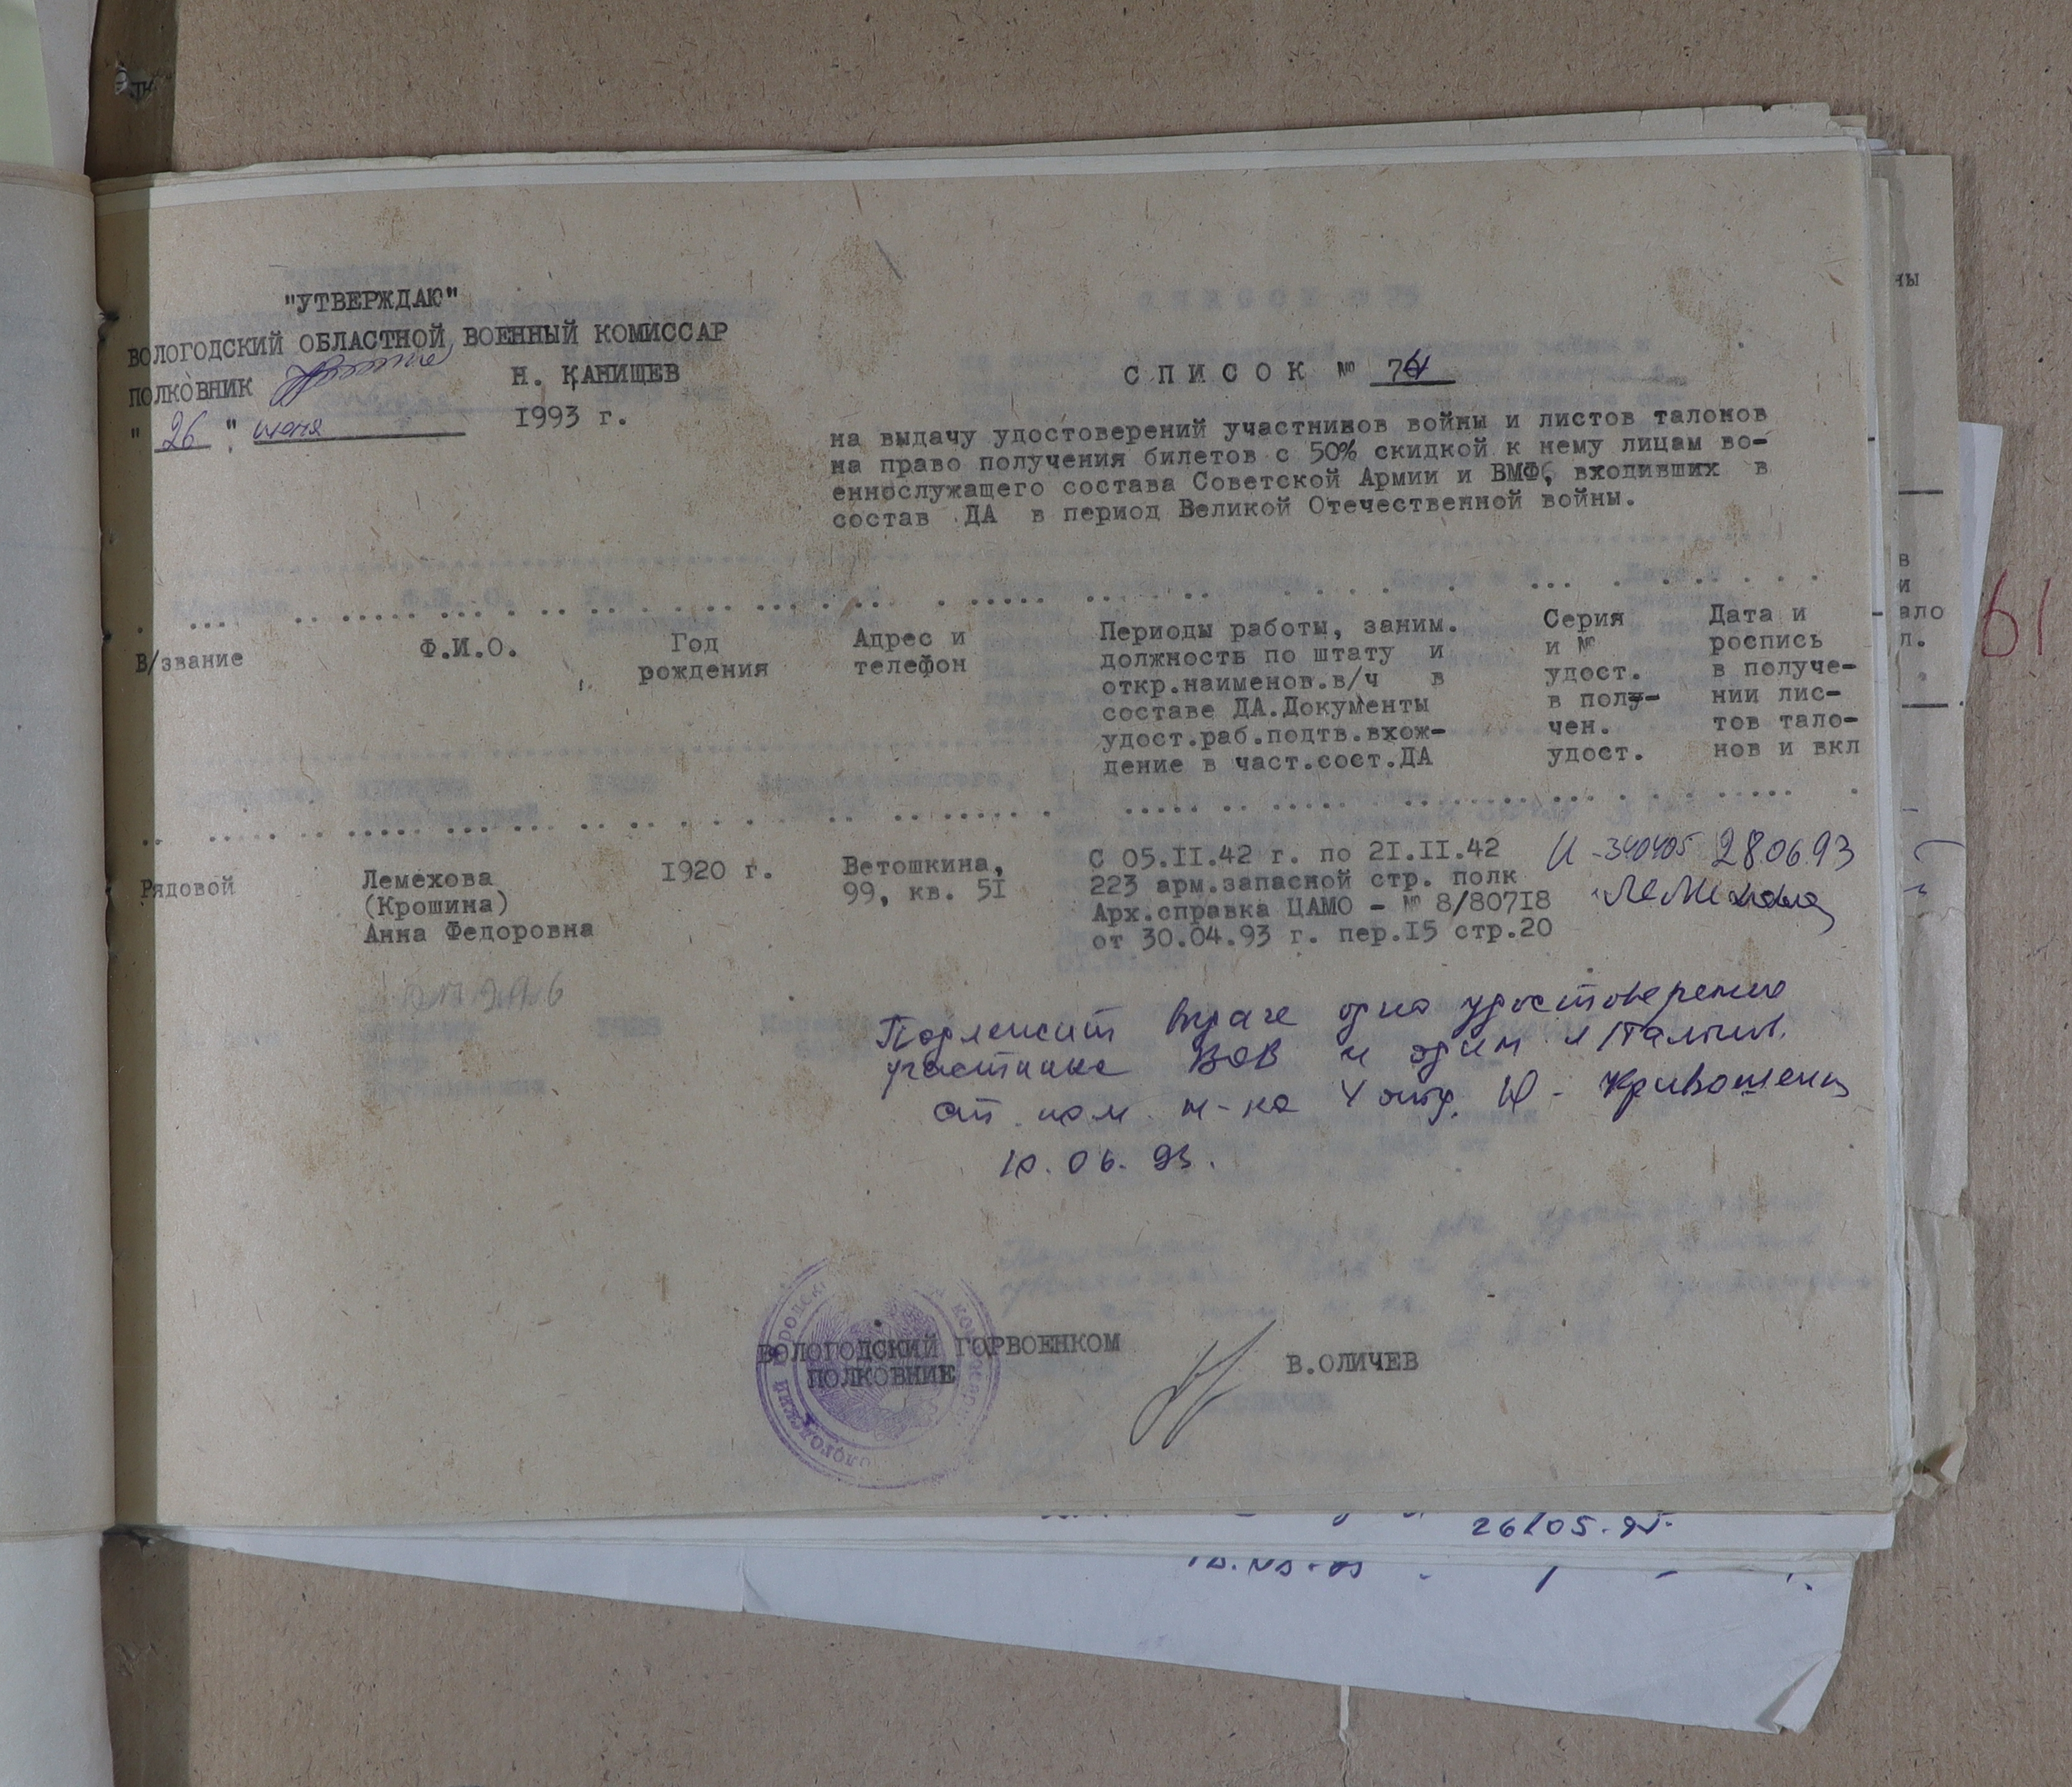 "УТВЕРЖДАЮ"
ВОЛОГОДСКИЙ ОБЛАСТНОЙ ВОЕННЫЙ КОМИССАР
ПОЛКОВНИК Н. КАНИЩЕВ
" 26 " июня 1993 г.
С П И С О К № 74
на выдачу удостоверений участников войны и листов талонов
на право получения билетов с 50% скидкой к нему лицам во-
еннослужащего состава Советской Армии и ВМФ, входивших в
состав ДА в период Великой Отечественной войны.
В/звание
Ф.И.О.
Год
рождения
Адрес и
телефон
Периоды работы, заним.
должность по штату и
откр.наименов.в/ч в
составе ДА.Документы
удост.раб.подтв.вхож-
дение в част.сост.ДА
Серия
и №
удост.
в полу-
чен.
удост.
Дата и
роспись
в получе-
нии лис-
тов тало-
нов и вкл
Рядовой
Лемехова
(Крошина)
Анна Федоровна
1920 г.
Ветошкина,
99, кв. 5I
С 05.II.42 г. по 2I.II.42
223 арм.запасной стр. полк
Арх.справка ЦАМО - № 8/807I8
от 30.04.93 г. пер.I5 стр.20
И - 340405 28.06.93
Лемехова
Подлежит выдаче одно удостоверение
участника ВОВ и один л/талон.
ст. пом. н-ка 4 отд. Кривошеин
10.06.93.
ВОЛОГОДСКИЙ ГОРВОЕНКОМ
ПОЛКОВНИЕ
В.ОЛИЧЕВ
61
26/05-95.